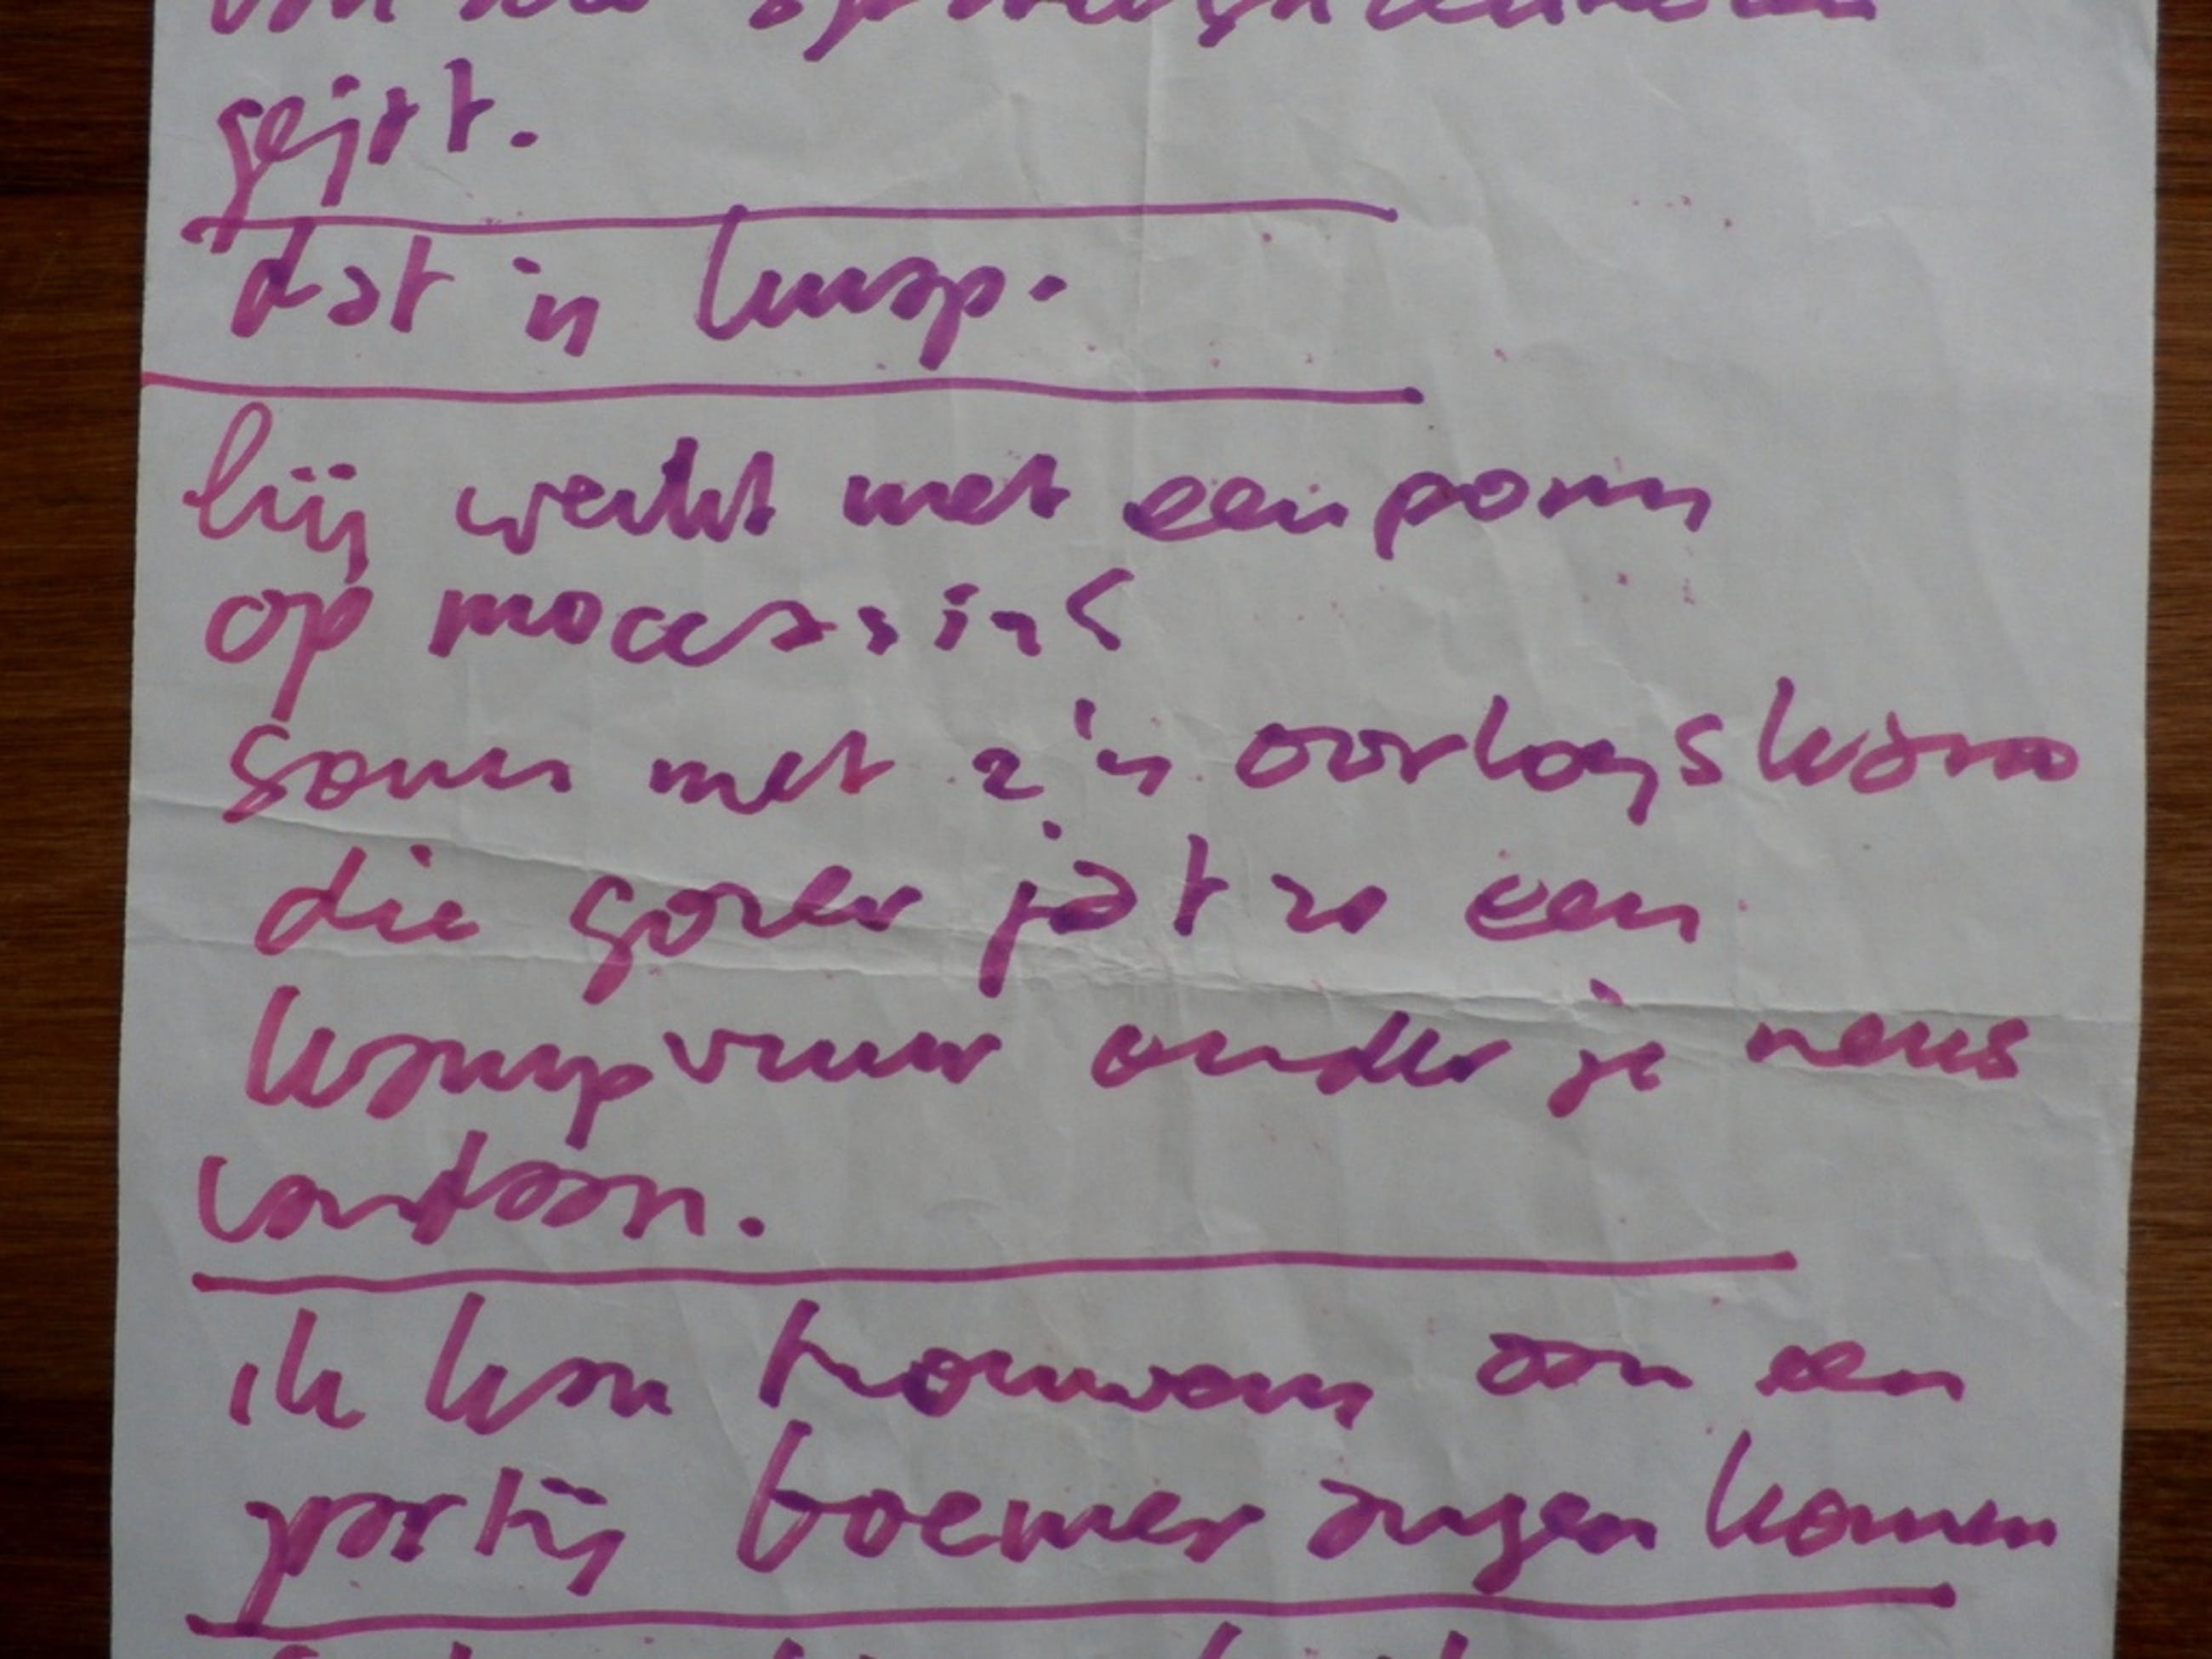 gejat.
dat is knap.
hij werkt met een pony
op mocassins
samen met z'n oorlogskano
die gozer jat zo een
kampvuur onder je neus
vandaan.
ik kan trouwens aan een
partij boemerangen komen